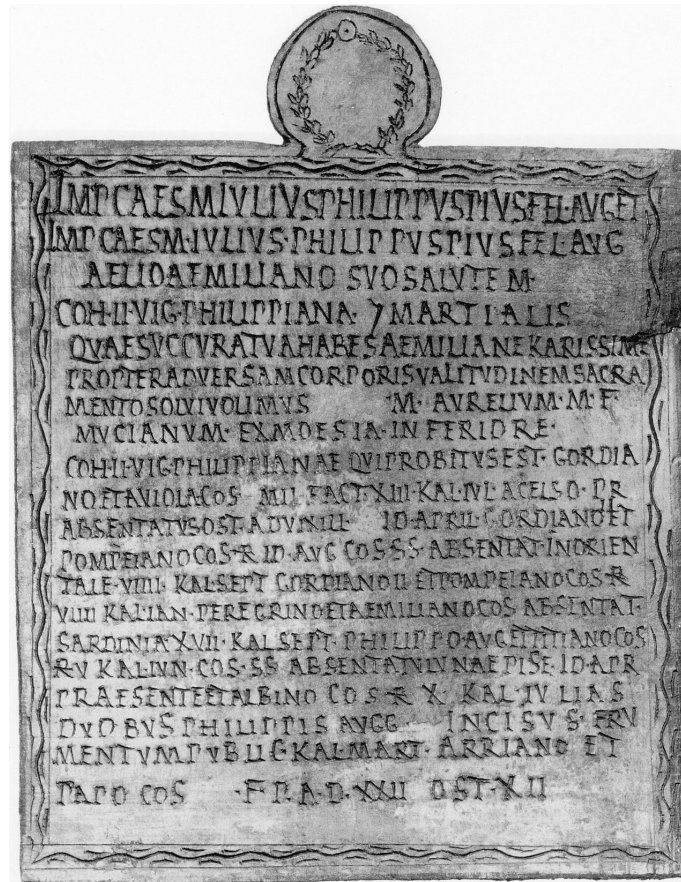 IMP CAES M IVLIVS PHILIPPVS PIVS FEL · AVG ET
IMP CAES M · IVLIVS · PHILIPPVS PIVS FEL · AVG
AELIO AEMILIANO SVO SALVTEM ·
COH · II · VIG · PHILIPPIANA · 7 MARTIALIS
QVAE SVC CVRA TVA HABES AEMILIANE KARISSIME
PROPTER ADVERSAM CORPORIS VALITVDINEM SACRA
MENTO SOLVI VOLIMVS · M · AVRELIVM · M · F ·
MVCIANVM · EX MOESIA · INFERIORE ·
COH · II · VIG · PHILIPPIANAE QVI PROBITVS EST · GORDIA
NO ET AVIOLA COS MIL FACT XIII · KAL · IVL A CELSO · PR
ABSENTATVS OST · ID · APRIL GORDIANO ET
POMPEIANO COS · R ID · AVG COS SS · ABSENTAT · IN ORIEN
TALE · VIIII · KAL · SEPT GORDIANO II ET POMPEIANO COS · R
VIIII KAL · IAN · PEREGRINO ET AEMILIANO COS ABSENTAT ·
SARDINIA XVII · KAL SEPT · PHILIPPO · AVG ET TITIANO COS
R V KAL IVN · COS · SS ABSENTATV LVNAE PISE · ID · APR
PRAESENTE ET ALBINO COS R X · KAL · IVLIAS
DVOBVS PHILIPPIS AVGG INCISVS · FRV
MENTVM PVBLIC KAL · MART · ARRIANO ET
PAPO COS · F P · A · D · XXII OST · XII